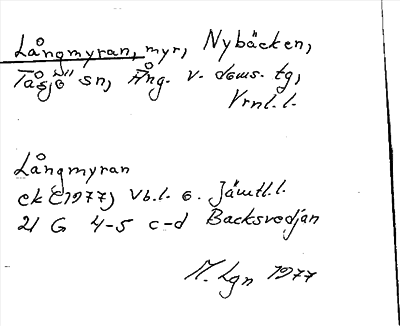 Långmyran, myr, Nybäcken,
Tåsjö sn, Ång. v. doms. tg,
Vrnl.l.
Långmyran
ek (1977) Vb.l. o. Jämtl.l.
21 G 4-5 c-d Backsvedjan
M. Lgn 1977